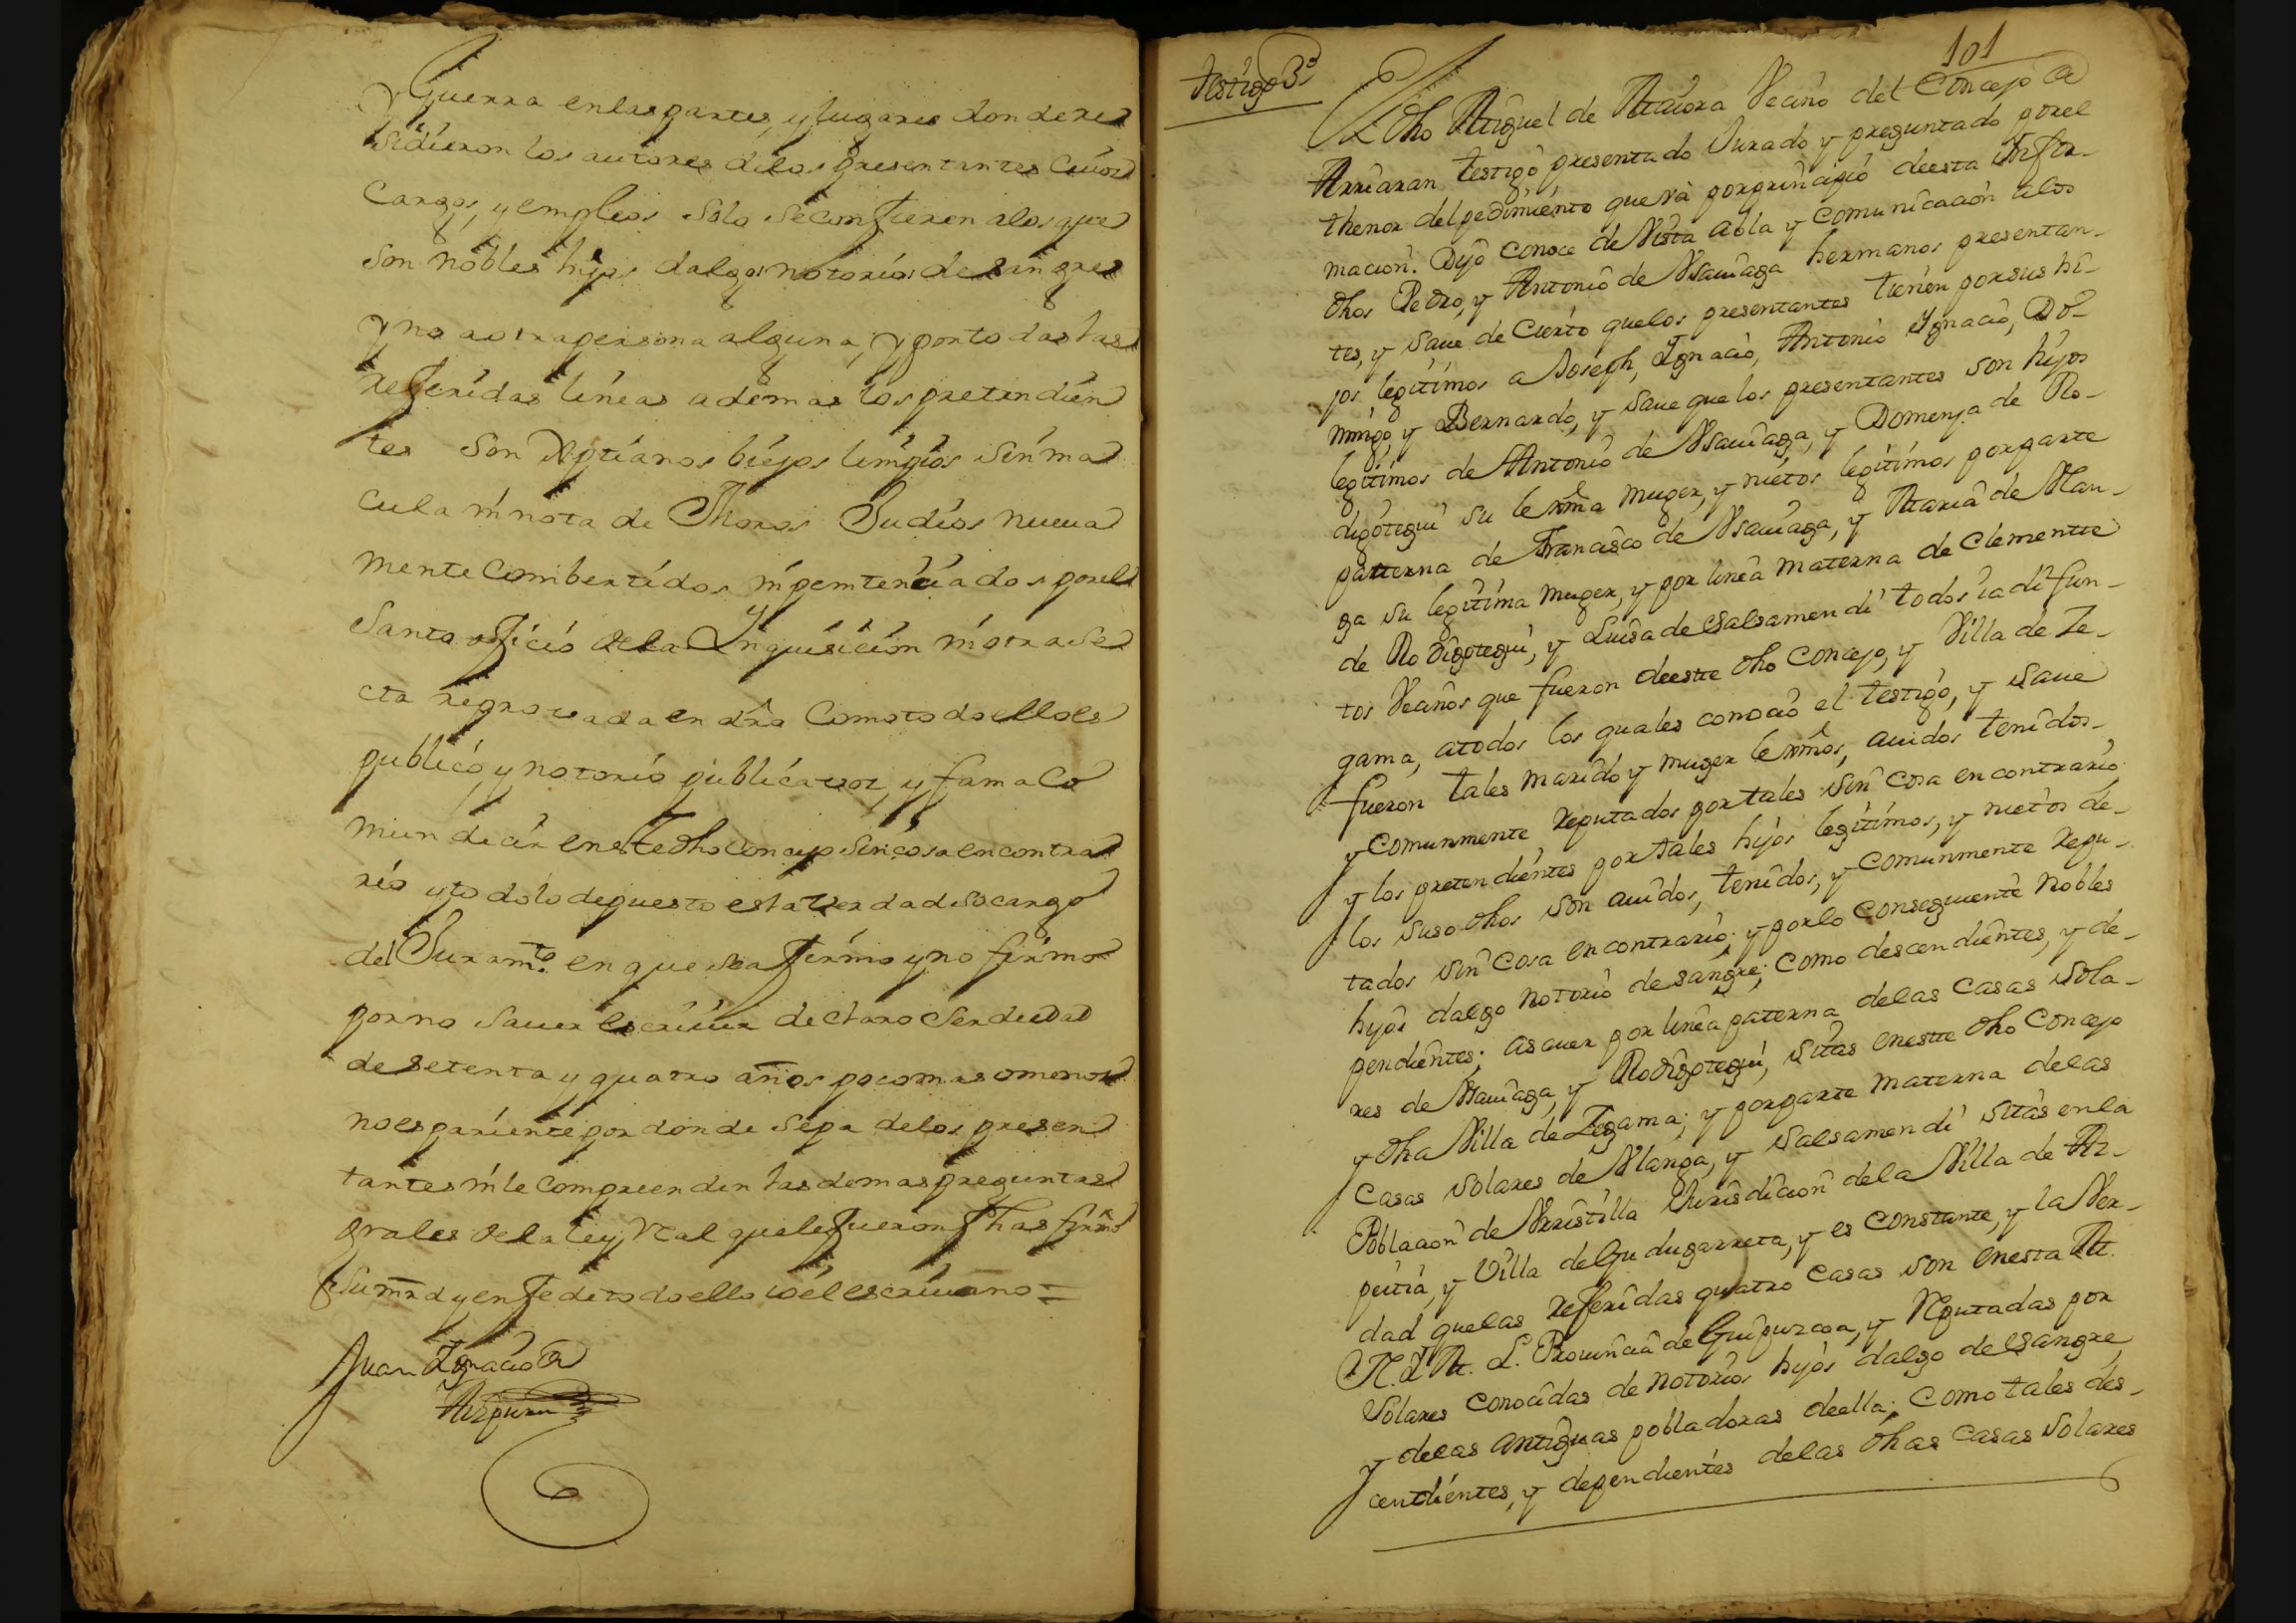 y Guerra enlas partes, y lugares donde re
sidieron los autores delos presentantes cuios
Cargos, y empleos solo se confieren alos que
son nobles hijos dalgo notorios de sangre
y no aotra persona alguna, y por todas las
referidas lineas ademas los pretendien
tes son Xptianos biejos limpios sin ma
cula ni nota de Moros Judios nueua
mente combertidos ni penitenciados por el
Santo oficio dela Inquisicion ni otra se
cta reprovada en dro como todo ello es
publico, y notorio publica voz, y fama co
mun decir en este dho Concejo sin cosa en contra
rio y todo lo depuesto es la verdad so cargo
del Juramto en que se afirmo y no firmo
por no sauer escriuir declaro ser de edad
de setenta y quatro años poco mas o menos
no es pariente por donde sepa delos presen
tantes ni le comprenden las demas preguntas
grales dela ley Real que le fueron fhas firmo
su mrd y en fe de todo ello io el escriuano =
Juan Ignacio de
Aizpuru
101
testigo 3º
El dho Miguel de Mauora Vecino del Concejo de
Arriaran testigo presentado Jurado y preguntado por el
thenor del pedimiento que va por principio de esta Infor-
macion. Dijo conoce de Vista abla y Comunicacion alos
dhos Pedro, y Antonio de Ysauiaga hermanos presentan-
tes, y saue de cierto quelos presentantes tienen por sus hi-
jos legitimos a Joseph, Ignacio, Antonio Ignacio, Do-
mingo, y Bernardo, y saue que los presentantes son hijos
legitimos de Antonio de Ysauiaga, y Domenja de Ro-
digotegui su lexma muger, y nietos legitimos por parte
patterna de Francisco de Ysauiaga, y Maria de Vlan-
ga su legitima muger, y por linea materna de Clementte
de Rodigotegui, y Luisa de Salsamendi todos ia difun-
tos Vecinos que fueron deestte dho Concejo, y Villa de Ze-
gama, atodos los quales conocio el testigo, y saue
fueron tales marido y muger lexmos, auidos tenidos
y Comunmente reputados por tales sin cosa en contrario
y los pretendientes por tales hijos legitimos, y nietos de
los suso dhos son auidos, tenidos, y comunmente repu-
tados sin cosa en contrario; y por lo conseguiente nobles
hijos dalgo notorio de sangre; como descendientes, y de-
pendientes; asauer por linea paterna delas casas sola-
res de Ysauiaga, y Rodigotegui, sitas enestte dho Concejo
y dha Villa de Zegama; y por parte materna delas
Casas solares de Vlanga, y Salsamendi sitas en la
Poblacion de Vrristilla Jurisdicion dela Villa de Az-
peitia, y Villa de Gudugarreta, y es constante, y la Ver-
dad quelas referidas quatro casas son enesta M.
N. y M. L. Prouincia de Guipuzcoa, y Reputadas por
Solares conocidas de notorios hijos dalgo de sangre,
y delas antiguas pobladoras deella; como tales des-
cendientes, y dependientes delas dhas casas solares